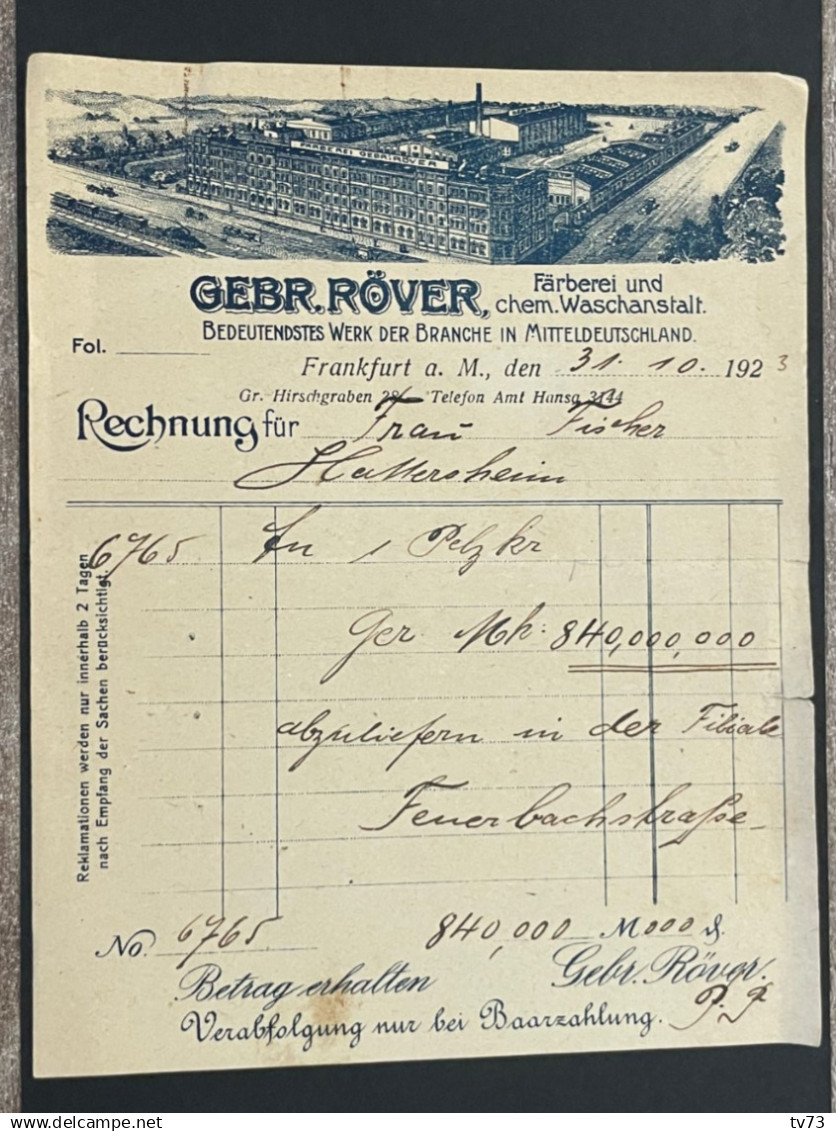 FÄRBEREI GEBR. RÖVER
GEBR. RÖVER, Färberei und
chem. Waschanstalt.
BEDEUTENDSTES WERK DER BRANCHE IN MITTELDEUTSCHLAND.
Fol.
Frankfurt a. M., den 31. 10. 1923
Gr. Hirschgraben Telefon Amt Hansa 3144
Rechnung für Frau Fischer
Hattersheim
6765 An 1 Pelzkr
Ger. Mk: 840,000,000
abzuliefern in der Filiale
Feuerbachstraße
Reklamationen werden nur innerhalb 2 Tagen
nach Empfang der Sachen berücksichtigt.
No. 6765 840,000 M 000 ₰.
Betrag erhalten Gebr. Röver.
Verabfolgung nur bei Baarzahlung. P. P
delcampe.net
tv73